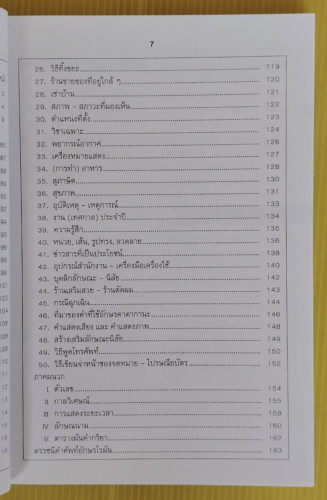 7
26. วิธีทิ้งขยะ 119
27. ร้านขายของที่อยู่ใกล้ ๆ 120
28. เช่าบ้าน 121
29. สภาพ - สภาวะที่มองเห็น 122
30. ตำแหน่งที่ตั้ง 123
31. วิชาเฉพาะ 124
32. พยากรณ์อากาศ 126
33. เครื่องหมายแสดง 127
34. (การทำ) อาหาร 128
35. สุภาษิต 130
36. สุขภาพ 131
37. อุบัติเหตุ - เหตุการณ์ 133
38. งาน (เทศกาล) ประจำปี 134
39. ความรู้สึก 135
40. หน่วย, เส้น, รูปทรง, ลวดลาย 136
41. ข่าวสารที่เป็นประโยชน์ 138
42. อุปกรณ์สำนักงาน - เครื่องมือเครื่องใช้ 140
43. บุคลิกลักษณะ - นิสัย 142
44. ร้านเสริมสวย - ร้านตัดผม 143
45. กรณีฉุกเฉิน 144
46. ที่มาของคำที่ใช้อักษรคาตากานะ 146
47. คำแสดงเสียง และ คำแสดงภาพ 148
48. สร้างเสริมลักษณะนิสัย 149
49. วิธีพูดโทรศัพท์ 150
50. วิธีเขียนจ่าหน้าซองจดหมาย - ไปรษณียบัตร 152
ภาคผนวก
I. ตัวเลข 154
II. กาลวิเศษณ์ 155
III. การแสดงระยะเวลา 158
IV. ลักษณนาม 160
V. ตารางผันคำกริยา 162
ดรรชนีคำศัพท์อักษรโรมัน 163